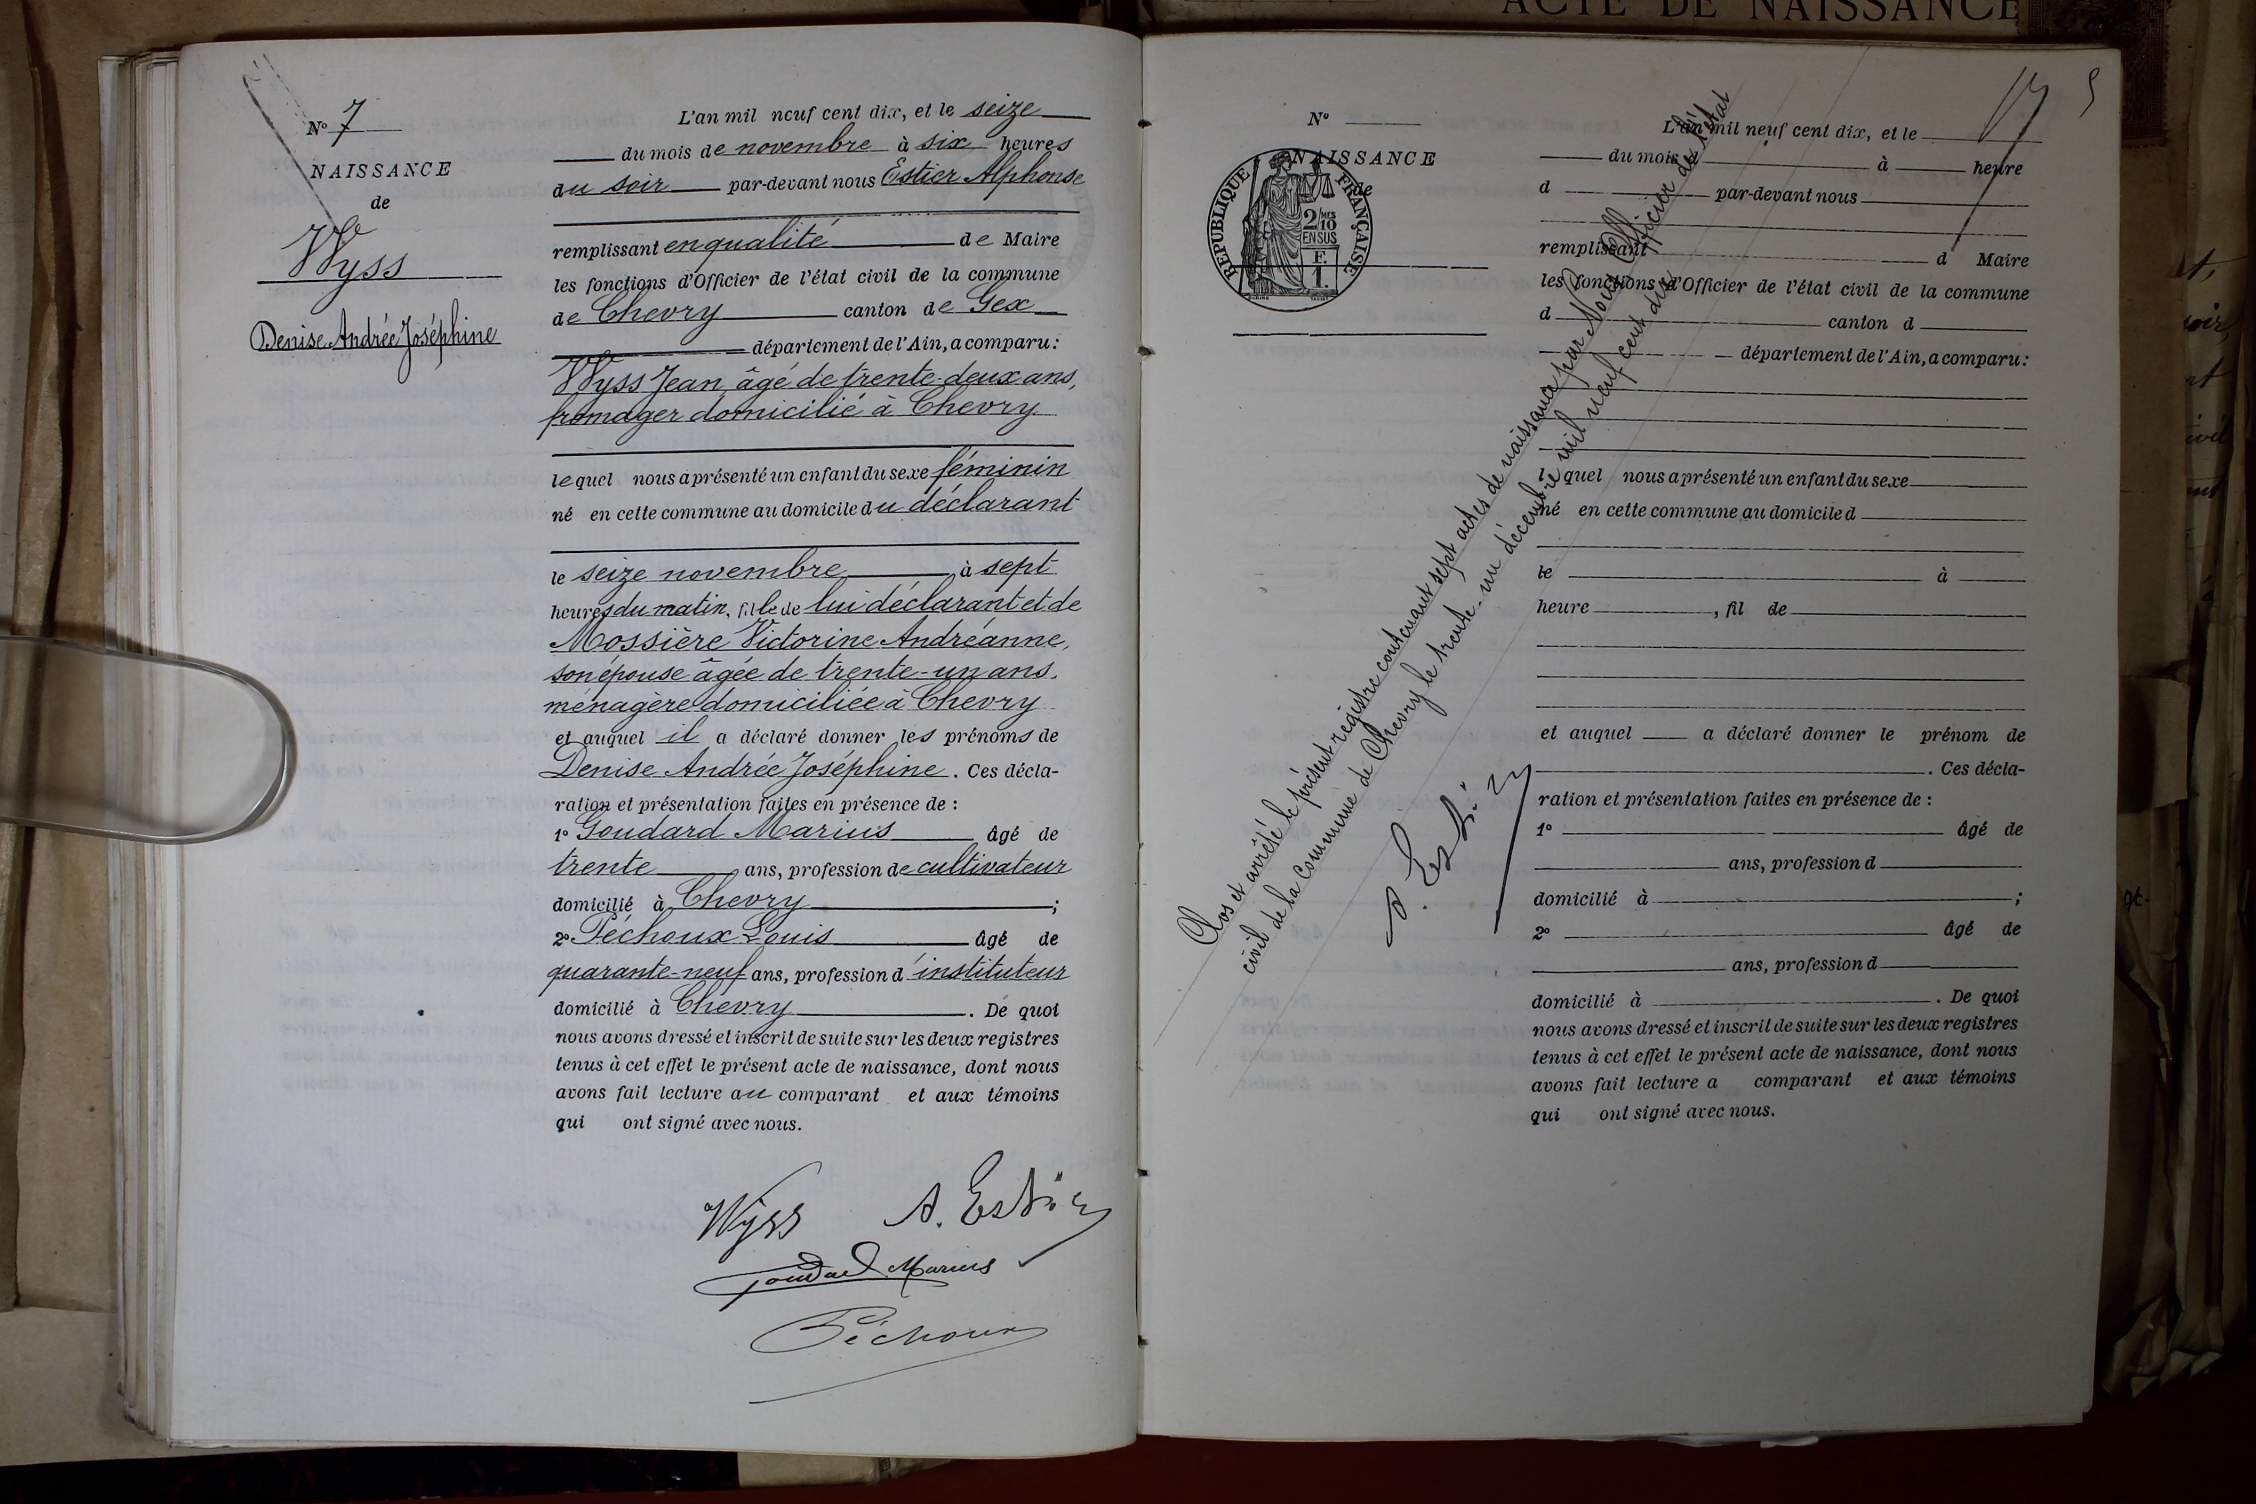 ACTE DE NAISSANCE
N° 7
NAISSANCE
de
Wyss
Denise Andrée Joséphine
L'an mil neuf cent dix, et le seize
du mois de novembre à six heures
du soir par-devant nous Estier Alphonse
remplissant en qualité de Maire
les fonctions d'Officier de l'état civil de la commune
de Chevry canton de Gex
département de l'Ain, a comparu :
Wyss Jean, âgé de trente-deux ans,
fromager domicilié à Chevry
lequel nous a présenté un enfant du sexe féminin
né en cette commune au domicile du déclarant
le seize novembre à sept
heures du matin, fille de lui déclarant et de
Mossière Victorine Andréanne,
son épouse âgée de trente-un ans,
ménagère domiciliée à Chevry
et auquel il a déclaré donner les prénoms de
Denise Andrée Joséphine. Ces décla-
ration et présentation faites en présence de :
1° Goudard Marius âgé de
trente ans, profession de cultivateur
domicilié à Chevry ;
2° Péchoux Louis âgé de
quarante-neuf ans, profession d'instituteur
domicilié à Chevry. De quoi
nous avons dressé et inscrit de suite sur les deux registres
tenus à cet effet le présent acte de naissance, dont nous
avons fait lecture au comparant et aux témoins
qui ont signé avec nous.
Wyss A. Estier
Goudard Marius
Péchoux
5
N°
NAISSANCE
de
RÉPUBLIQUE FRANÇAISE
2/10 MES
EN SUS
F.
1.
L'an mil neuf cent dix, et le
du mois d à heure
d par-devant nous
remplissant d Maire
les fonctions d'Officier de l'état civil de la commune
d canton d
département de l'Ain, a comparu :
l quel nous a présenté un enfant du sexe
né en cette commune au domicile d
le à
heure , fil de
et auquel a déclaré donner le prénom de
. Ces décla-
ration et présentation faites en présence de :
1° âgé de
ans, profession d
domicilié à ;
2° âgé de
ans, profession d
domicilié à . De quoi
nous avons dressé et inscrit de suite sur les deux registres
tenus à cet effet le présent acte de naissance, dont nous
avons fait lecture a comparant et aux témoins
qui ont signé avec nous.
Clos et arrêté le présent registre contenant sept actes de naissance par Nous Officier de l'état
civil de la commune de Chevry le trente-un décembre mil neuf cent dix
A. Estier